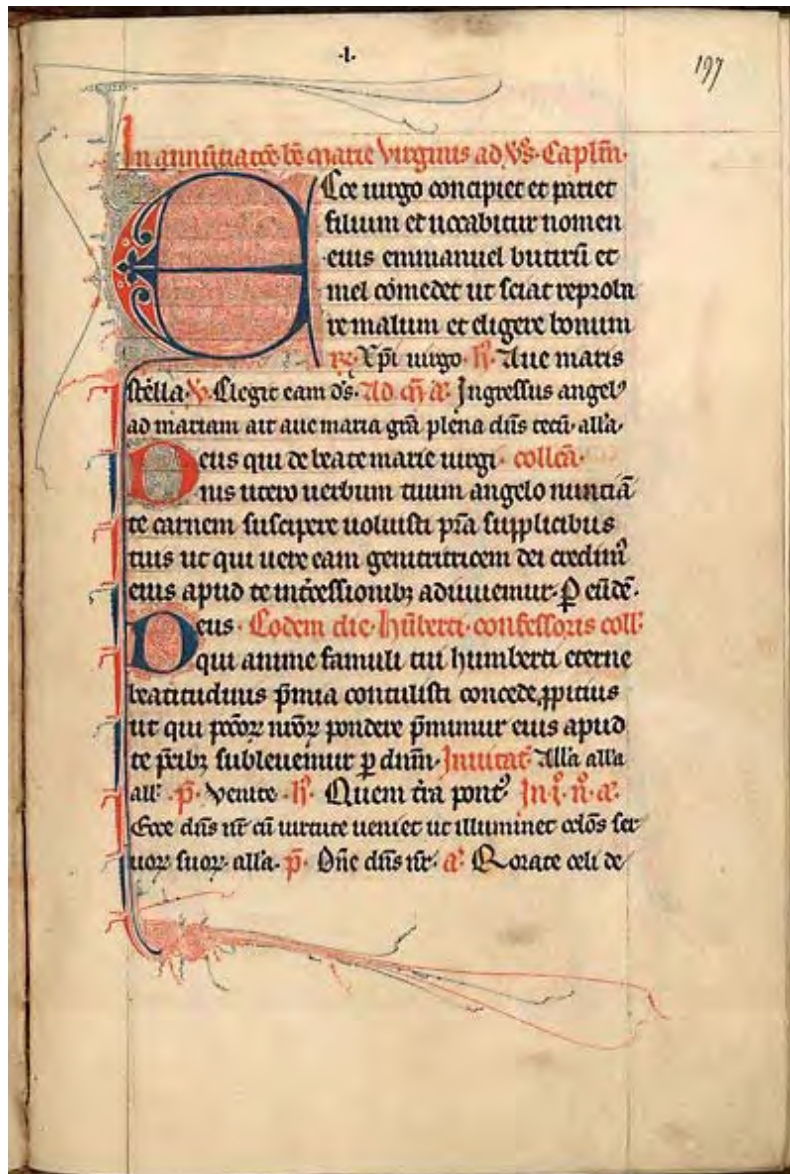 ·l·
197
In annūtiatōe bē marie virginis ad v̄s· Caplm̄·
Ecce uirgo concipiet et pariet
filium et uocabitur nomen
eius emmanuel butirū et
mel cōmedet ut sciat reproba
re malum et eligere bonum
R̄. Xp̄i uirgo h̄. Aue maris
stella. v̄. Elegit eam d̄s. Ad m̄ a. Ingressus angelꝰ
ad mariam ait aue maria grā plena dn̄s tecū· all'a·
Deus qui de beate marie uirgi· collcā·
nis utero uerbum tuum angelo nunciā
te carnem suscipere uoluisti pr̄a supplicibus
tuis ut qui uere eam genitricem dei credimꝰ
eius apud te int̄cessionibꝫ adiuuemur· P eūdē·
Deus· Eodem die· hūberti· confessoris coll'·
qui anime famuli tui humberti eterne
beatitudinis p̄mia contulisti concede ꝓpitius
ut qui pc̄cōꝝ nr̄oꝝ pondere p̄mimur eius apud
te p̄cibꝫ subleuemur p dnm̄· Inuitat̄ All'a all'a
all'· p̄· Venite· h̄. Quem t̄ra pontꝰ In ·i· n̄· a·
Ecce dn̄s nr̄ cū uirtute ueniet ut illuminet oclōs ser
uoꝝ suoꝝ· all'a· p̄· Dn̄e dn̄s nr̄· a· Rorate celi de